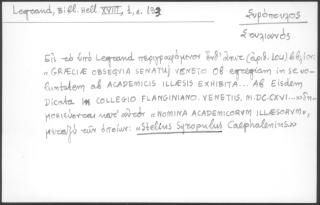 Legrand, Bibl. Hell. XVIII, 1, σ. 133
Συρόπουλος
Στυλιανός
Εἰς τὸ ὑπὸ Legrand περιγραφόμενον (ἀριθ. 101) βιβλίον:
«GRÆCIÆ OBSEQVIA SENATUJ VENETO OB egregiam in se vo-
luntatem ab ACADEMICIS ILLÆSIS EXHIBITA... Ab Eisdem
Dicata IN COLLEGIO FLANGINIANO. VENETIIS, M.DC.CXVI...» δη-
μοσιεύονται «NOMINA ACADEMICORVM ILLÆSORVM»,
μεταξὺ τῶν ὁποίων: «Stelius Syropulus Caephalenius»